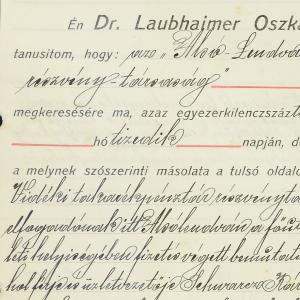 Én Dr. Laubhaimer Oszká
tanusítom, hogy: az „Alsó-Lendva
részvény-társaság"
megkeresésére ma, azaz egyezerkilenczszázt
hó tizedik napján, d
a melynek szószerinti másolata a tulsó oldalo
Vidéki takarékpénztár részvényta
elfogadónak itt Alsólendván a fő ut
helyiségében fizetés végett bemutat
hol férje és üzletvezetője Schwarcz Kár